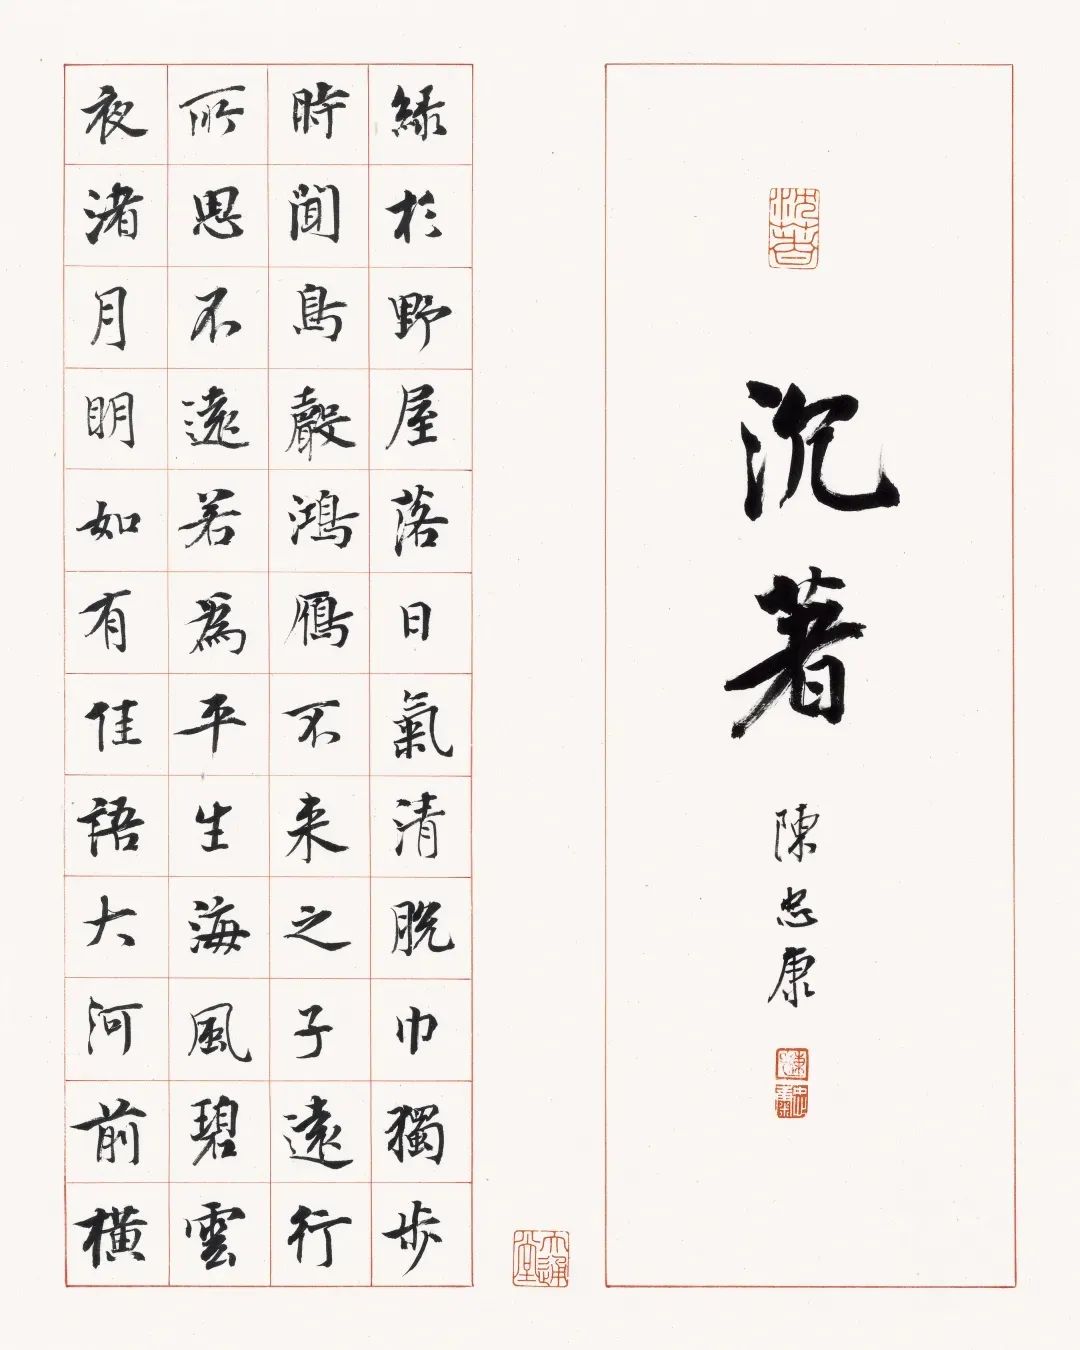 沈著
沉著
陳忠康
陳
忠康
緑於野屋落日氣清脫巾獨步
時聞鳥聲鴻鴈不来之子遠行
所思不遠若為平生海風碧雲
夜渚月明如有佳語大河前橫